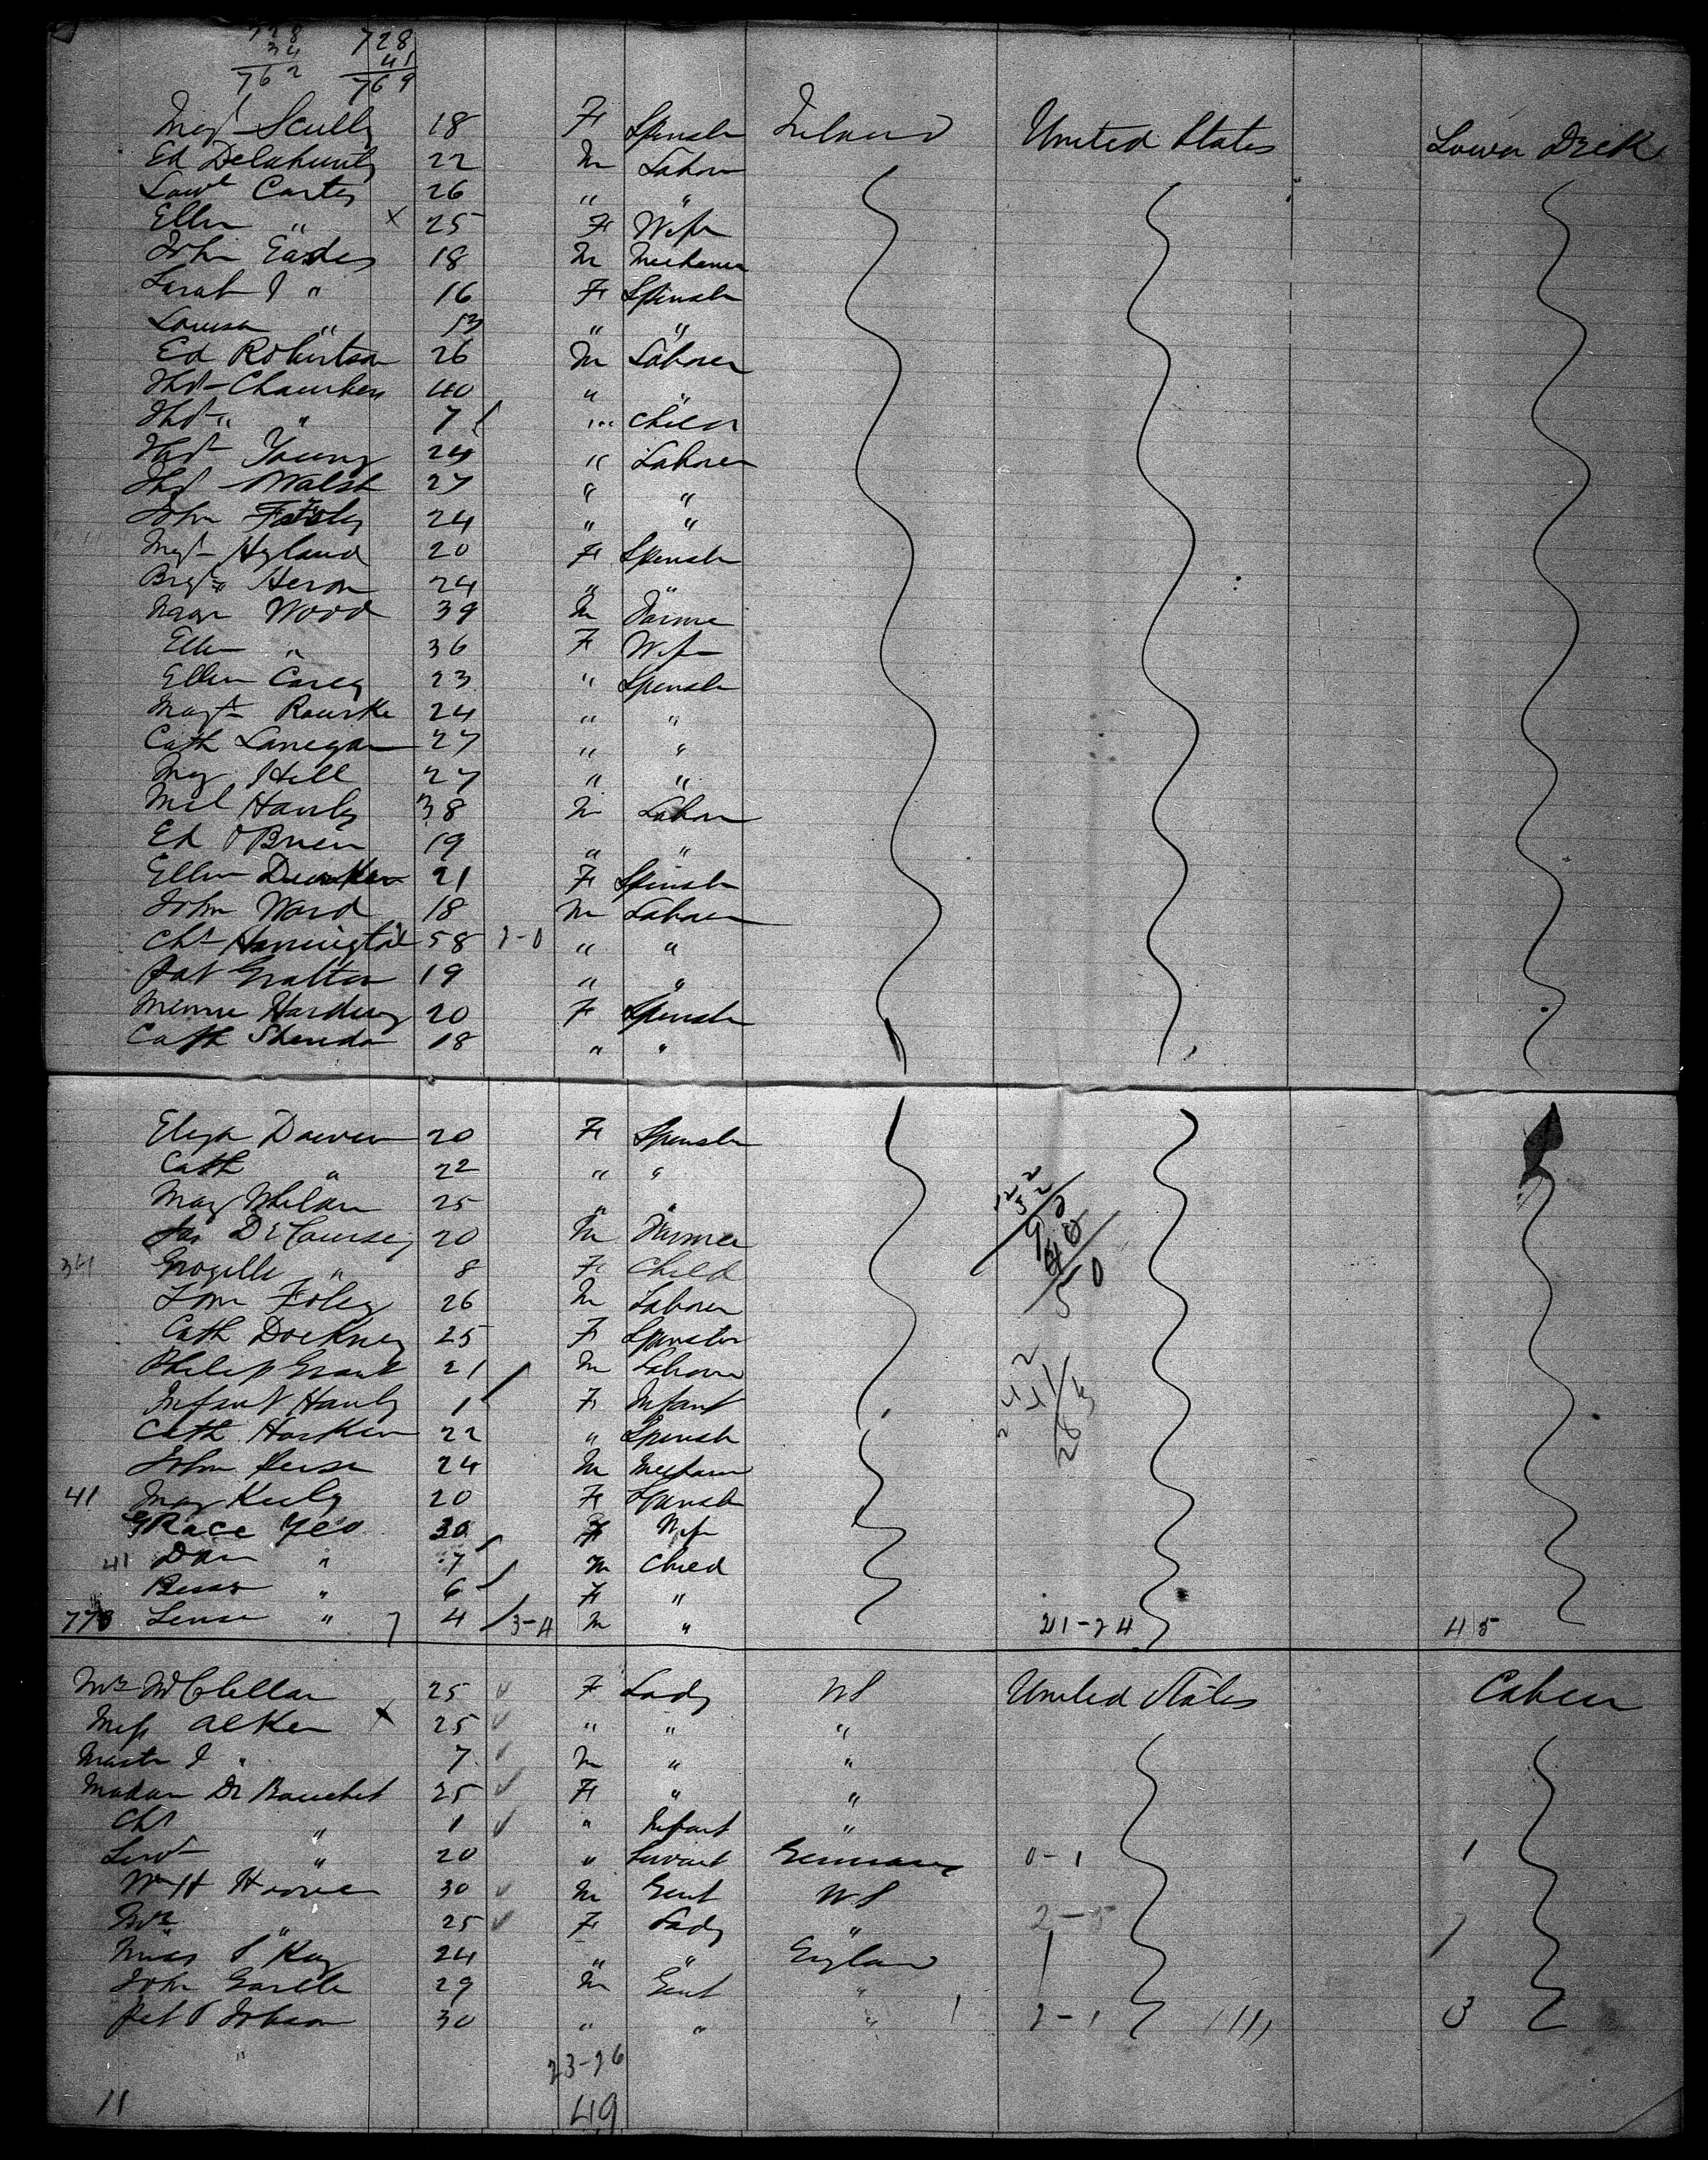 728 728
34 41
762 769
Mgt Scully 18 F Spinster Ireland United States Lower Deck
Ed Delahunty 22 M Labor
Lawr Carter 26 " "
Ellen " x 25 F Wife
John Eades 18 M Mechanic
Sarah J " 16 F Spinster
Louisa " 13 " "
Ed Robertson 26 M Laborer
Thos Chambers 40 " "
Thos " " 7 " Child
Thos Young 24 " Laborer
Thos Walsh 27 " "
John Foley 24 " "
Mgt Hyland 20 F Spinster
Brgt Heron 24 " "
Wood 39 M Farmer
Ellen " 36 F Wife
Ellen Carey 23 " Spinster
Magt Rourke 24 " "
Cath Lanegan 27 " "
My Hill 27 " "
Mcl Hanly 38 M Labor
Ed O'Brien 19 " "
Ellen 21 F Spinster
John Ward 18 M Laborer
Chs Harrington 58 " "
Pat Gratton 19 " "
Minnie Harding 20 F Spinster
Cath Sheridan 18 " "
Eliza 20 F Spinster
Cath " 22 " "
Mary Whelan 25 " "
Jas DeCoursey 20 M Farmer
341 " 8 F Child
Tom Foley 26 M Laborer
Cath Dockney 25 F Spinster
Philip Grant 21 M Laborer
Infant Hanly 1 F Infant
Cath Harken 22 " Spinster
John 24 M Mechanic
41 May Keely 20 F Spinster
Grace Yeo 30 F Wife
41 Dan " 7 M Child
Bessy " 6 F "
773 " 7 4 3-4 M " 21-24 45
Mrs McClellan 25 F Lady US United States Cabin
Miss Alker x 25 " " "
Master J " 7 M " "
Madam De Bouchet 25 F " "
Chs " 1 " Infant "
Servt " 20 " Servant Germany 0-1 1
Wm H Hoover 30 M Gent US
Mrs " 25 F Lady " 2-5 7
Miss S Kay 24 " " England
John Garlle 29 M Gent "
Pet Johnson 30 " " " 1 2-1 1111 3
"
23-26
11 49